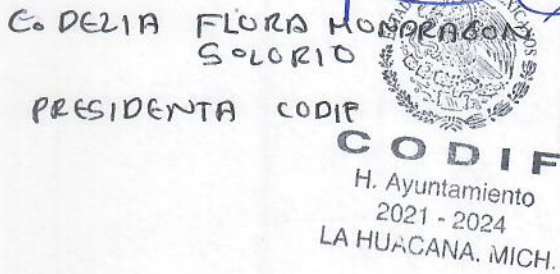 C. DELIA FLORA MONDRAGON
SOLORIO
PRESIDENTA CODIF
CODIF
H. Ayuntamiento
2021 - 2024
LA HUACANA. MICH.